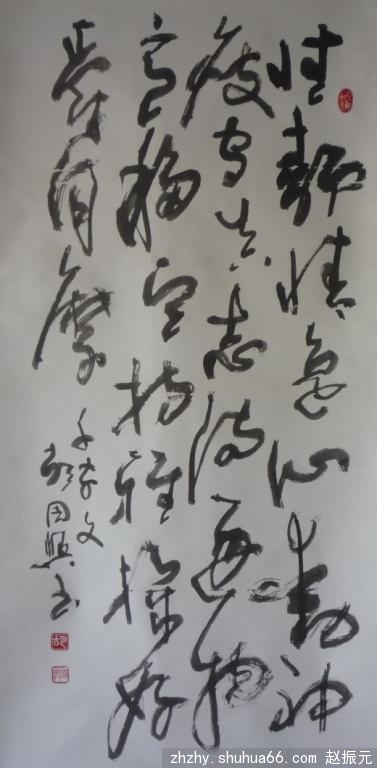 性靜情逸心動神
疲守真志滿逐物
意移堅持雅操好
爵自縻
千字文
书
zhzhy.shuhua66.com 赵振元